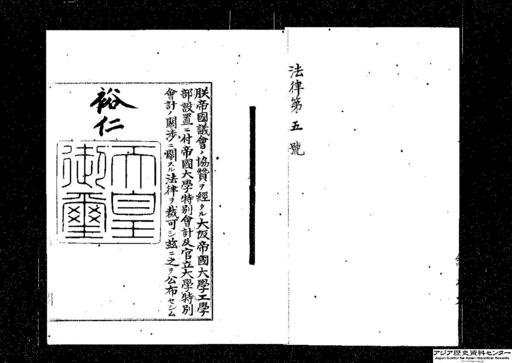 法律第五號
朕帝國議會ノ協贊ヲ經タル大阪帝國大學工學
部設置ニ付帝國大學特別會計及官立大學特別
會計ノ關涉ニ關スル法律ヲ裁可シ玆ニ之ヲ公布セシム
裕仁
天皇
御璽
アジア歴史資料センター
Japan Center for Asian Historical Records